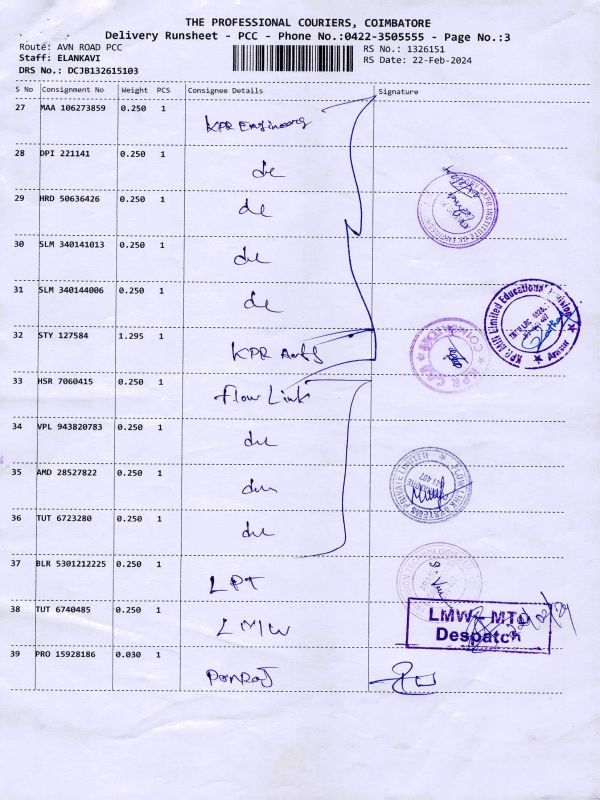 THE PROFESSIONAL COURIERS, COIMBATORE
Delivery Runsheet - PCC - Phone No.:0422-3505555 - Page No.:3
Route: AVN ROAD PCC RS No.: 1326151
Staff: ELANKAVI RS Date: 22-Feb-2024
DRS No.: DCJB132615103
S No Consignment No Weight PCS Consignee Details Signature
27 MAA 106273859 0.250 1 KPR Engineerg
28 DPI 221141 0.250 1 do
29 HRD 50636426 0.250 1 do
30 SLM 340141013 0.250 1 do
31 SLM 340144006 0.250 1 do
32 STY 127584 1.295 1 KPR Arts
33 HSR 7060415 0.250 1 Flow Link
34 VPL 943820783 0.250 1 do
35 AMD 28527822 0.250 1 do
36 TUT 6723280 0.250 1 do
37 BLR 5301212225 0.250 1 LPT
38 TUT 6740485 0.250 1 LMW
39 PRO 15928186 0.030 1 PonRaj
KPR Mill Limited Educational Division
Arasur
KPR CAA
COIMBATORE
641 407
LMW - MTD
Despatch